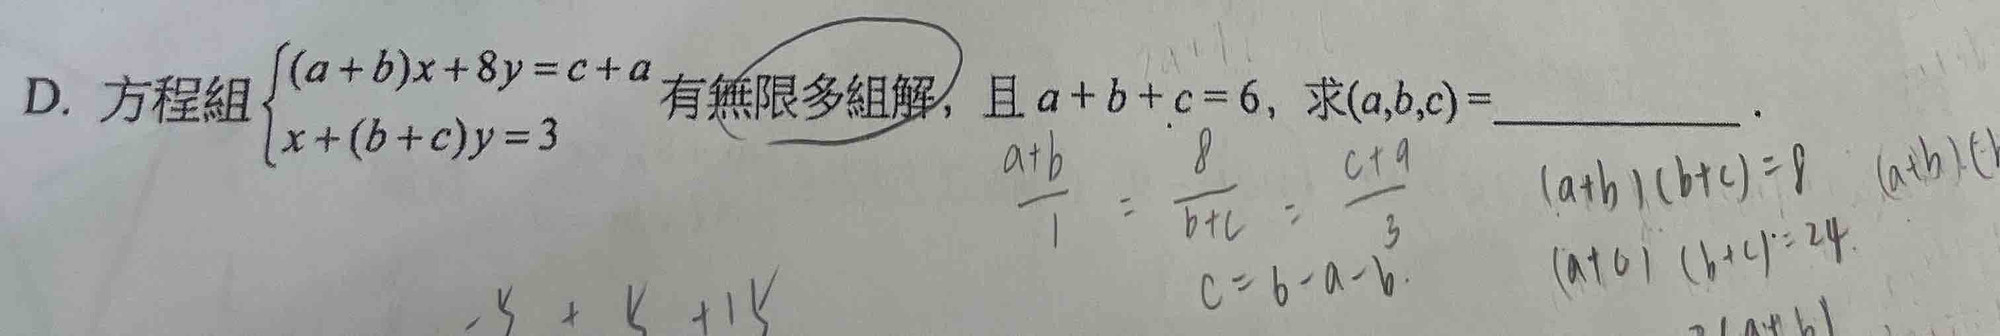 D. 方程組 { (a+b)x+8y=c+a
x+(b+c)y=3 有無限多組解，且 a+b+c=6，求(a,b,c)=__________.
a+b/1 = 8/b+c = c+a/3
(a+b)(b+c)=8
c=6-a-b.
(a+c)(b+c)=24.